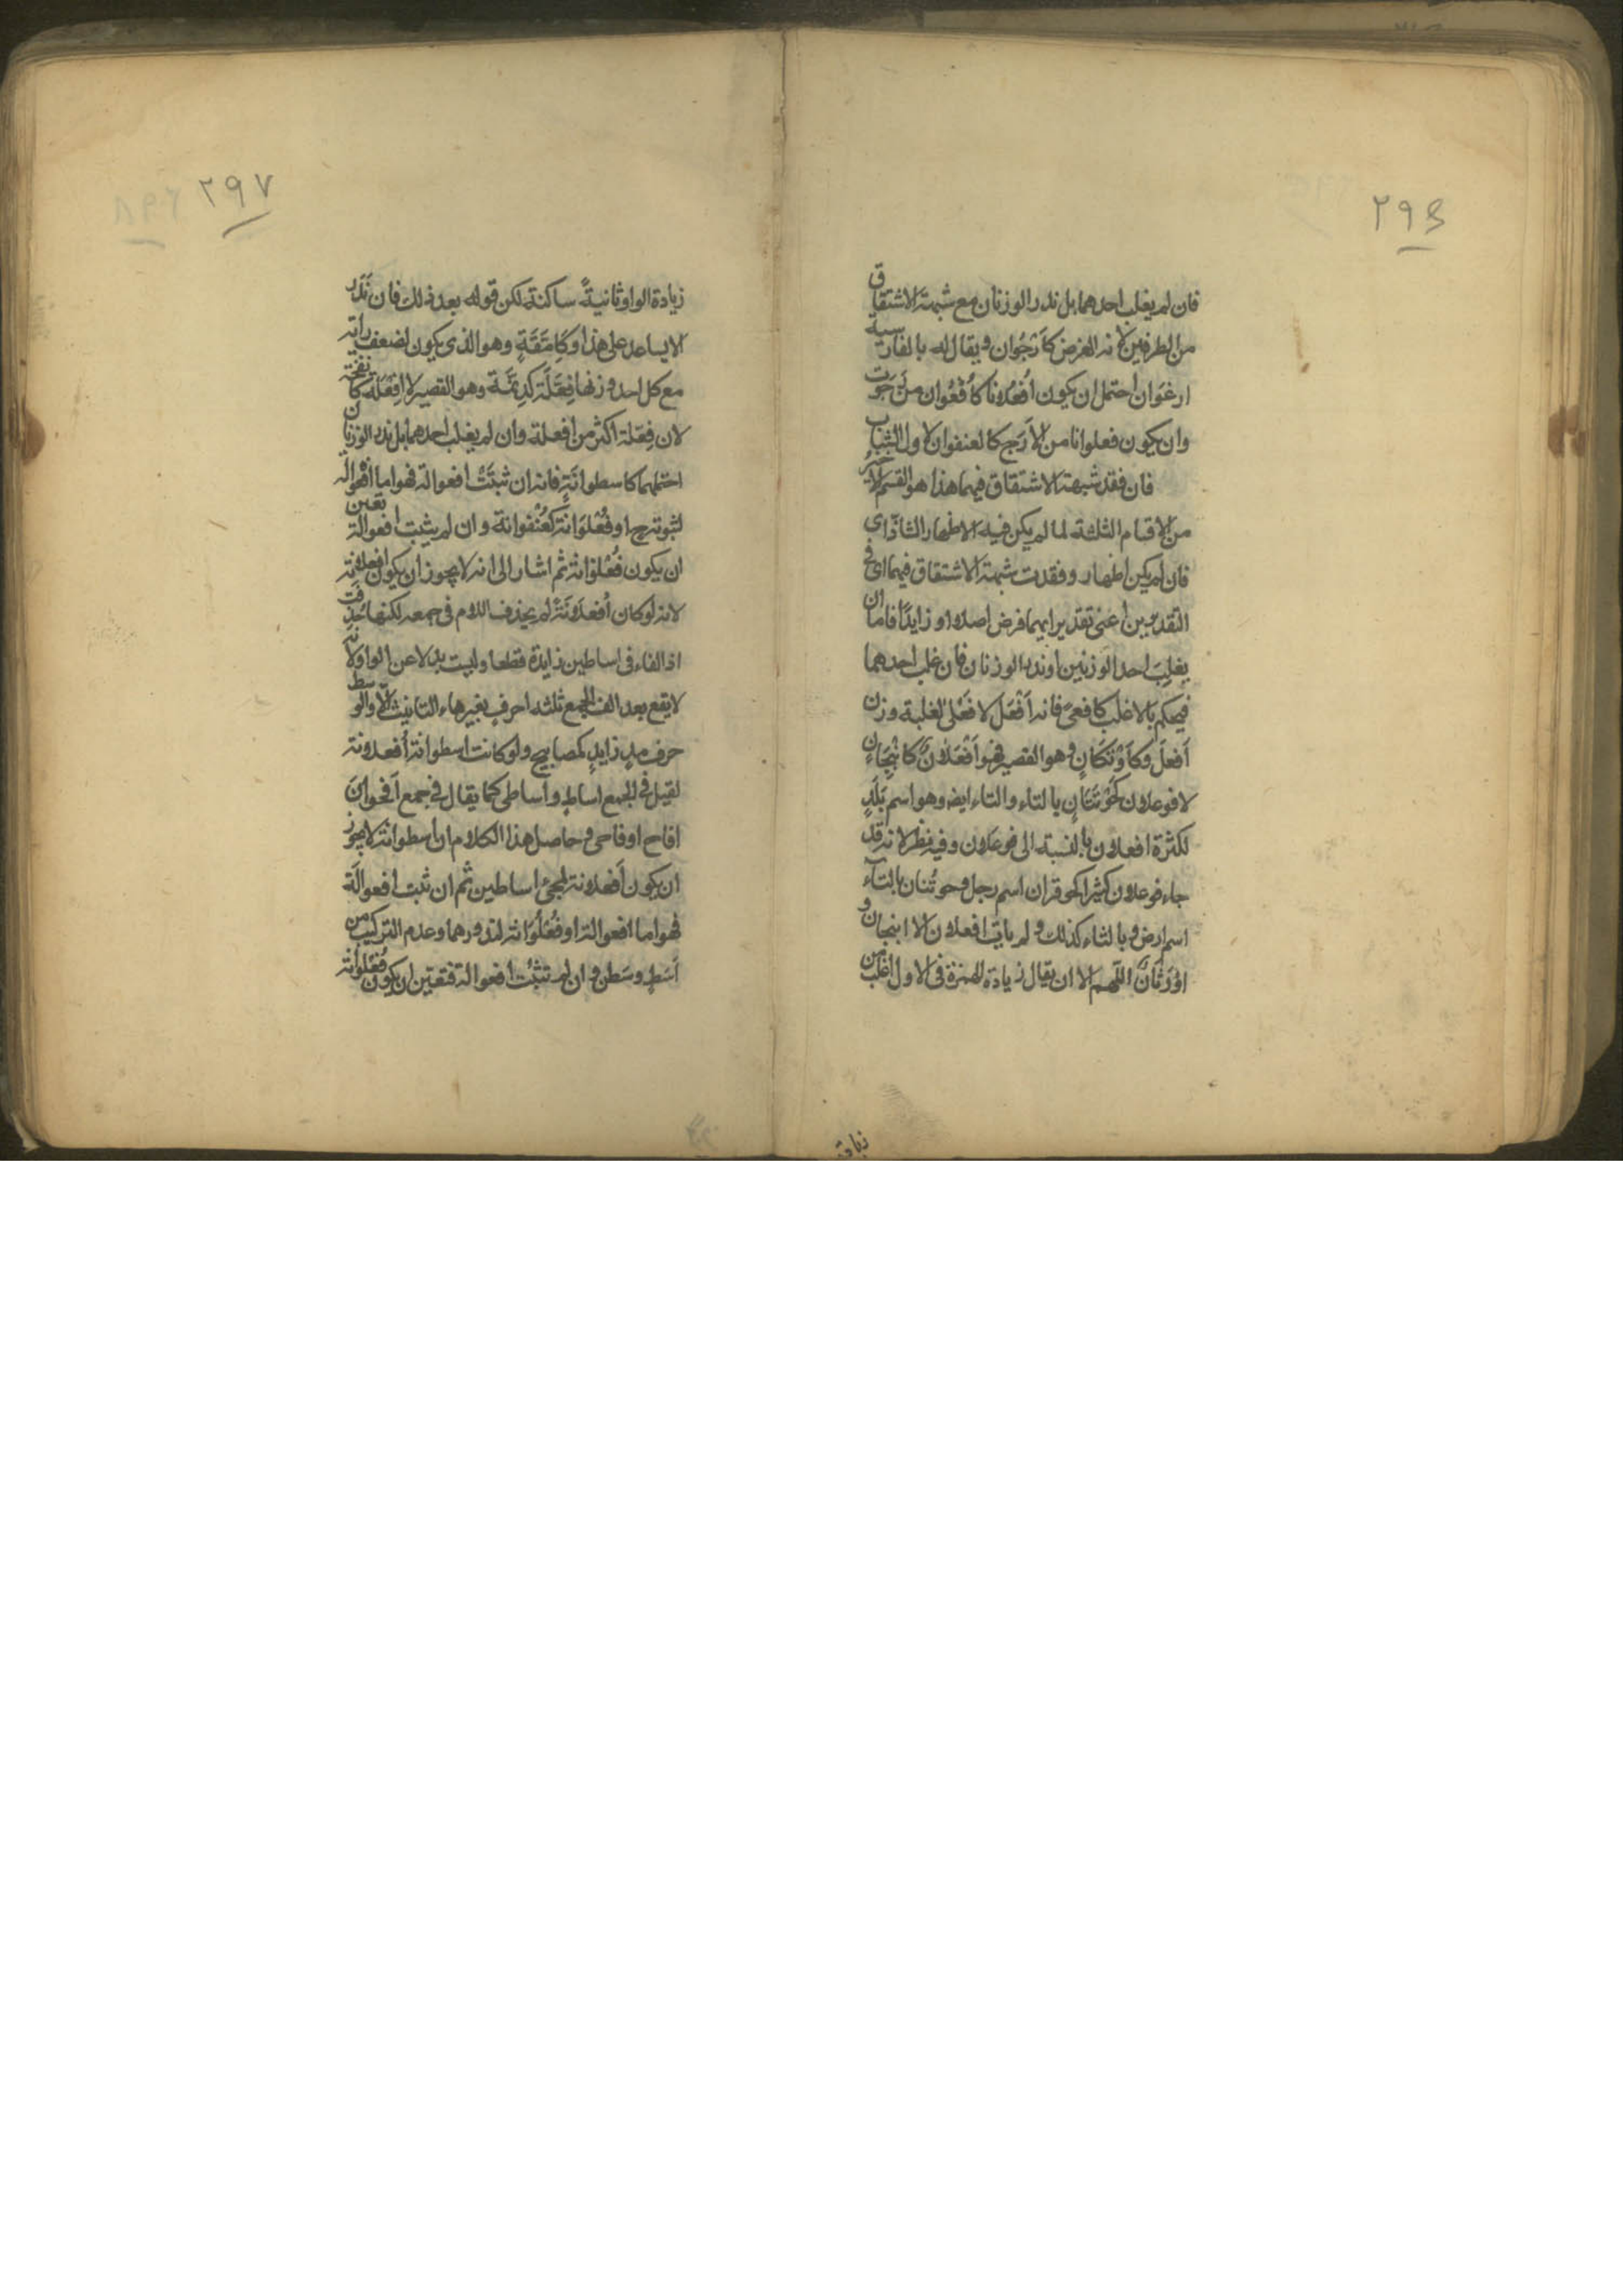 ٢٩٦
فان لم يغلب احدهما بل ندر الوزنان مع شبهة الاشتقاق
من الطرفين لانه الغرض كاَرْجُوان ويقال له بالفارسية
ارغَوَان احتمل ان يكون اُفْعُلانا كاُفْعُوان من رَجَوت
وان يكون فعلوانا من الاَرَج كالعنفوان لاول الشباب
فان فقد شبهة الاشتقاق فيهما هذا هو القسم الاخير
من الاقسام الثلثة لما لم يكن فيه الاظهار الشاذّ اى
فان لم يكن اظهار وفقدت شبهة الاشتقاق فيهما اى فى
التقديرين اعنى تقدير ايهما فرض اصلا او زايدًا فاما ان
يغلِبَ احد الوزنين او ندر الوزنان فان غلب احدهما
فيحكم بالاغلب كافعىً فانه اَفْعَل لا فَعْلى لغلبة وزن
اَفعلَ وكاَوْتَكَانٍ وهو القصير فهو اَفْعَلانٌ كانْبِجَانٍ
لا فوعلان كحَوْتَنَانٍ بالتاء والتاء ايضا وهو اسم بَلَدٍ
لكثرة افعلان بالنسبة الى فوعلان وفيه نظر لانه قد
جاء فوعلان كثيرا كحوقران اسم رجل وحوتُنان بالتآء
اسم ارض وبالثاء كذلك و لم يات افعلان الا انبجان و
اَرْوَنَانٌ اللّهم الا ان يقال زيادة الهمزة فى الاول اغلب من
زيادة
٢٩٧
زيادة الواو ثانيةً ساكنة لكن قوله بعد ذلك فان نَدَر
لا يساعد على هذا وكَاِمَّعَةٍ وهو الذى يكون لضعف رايه
مع كل احد وزنها فِعَّلَة كَدِنَّمَة وهو القصير لا اِفْعَلَة كانفخة
لان فِعّلة اكثر من افعلة وان لم يغلب احدهما بل ندر الوزنان
احتملهما كاسطوانَةٍ فانه ان ثبتَتْ افعوالة فهو اما اُفعُوالة
لثبوته ح او فُعْلُوَانة كعُنْفوانة وان لم يثبت افعوالة تعين
ان يكون فُعْلُوَانة ثم اشار الى انه لا يجوز ان يكون افعلانة
لانه لو كان اُفعلانَةً لم يحذف اللام فى جمعه لكنها حُذِفت
اذ الفاء فى اساطين زايدة قطعا وليست بدلا عن الواو لانه
لا يقع بعد الف الجمع ثلثه احرف بغير هاء التانيث الّا والوسط
حرف مدٍ زايدٍ كمصابيح ولو كانت اسطوانة اُفعلانة
لقيل فى الجمع اساطٍ واساطى كما يقال فى جمع اُقحوانَ
اقاح او قاحى وحاصل هذا الكلام ان اسطوانة لا يجوز
ان يكون اُفعلانة لمجئ اساطين ثم ان ثبت افعوالَة
فهو اما افعوالة او فُعْلُوَانة لندورهما وعدم التركيب من
اَسَطٍ وسَطن وان لم تثبُت افعوالة فتعين ان يكون فُعْلُوَانة